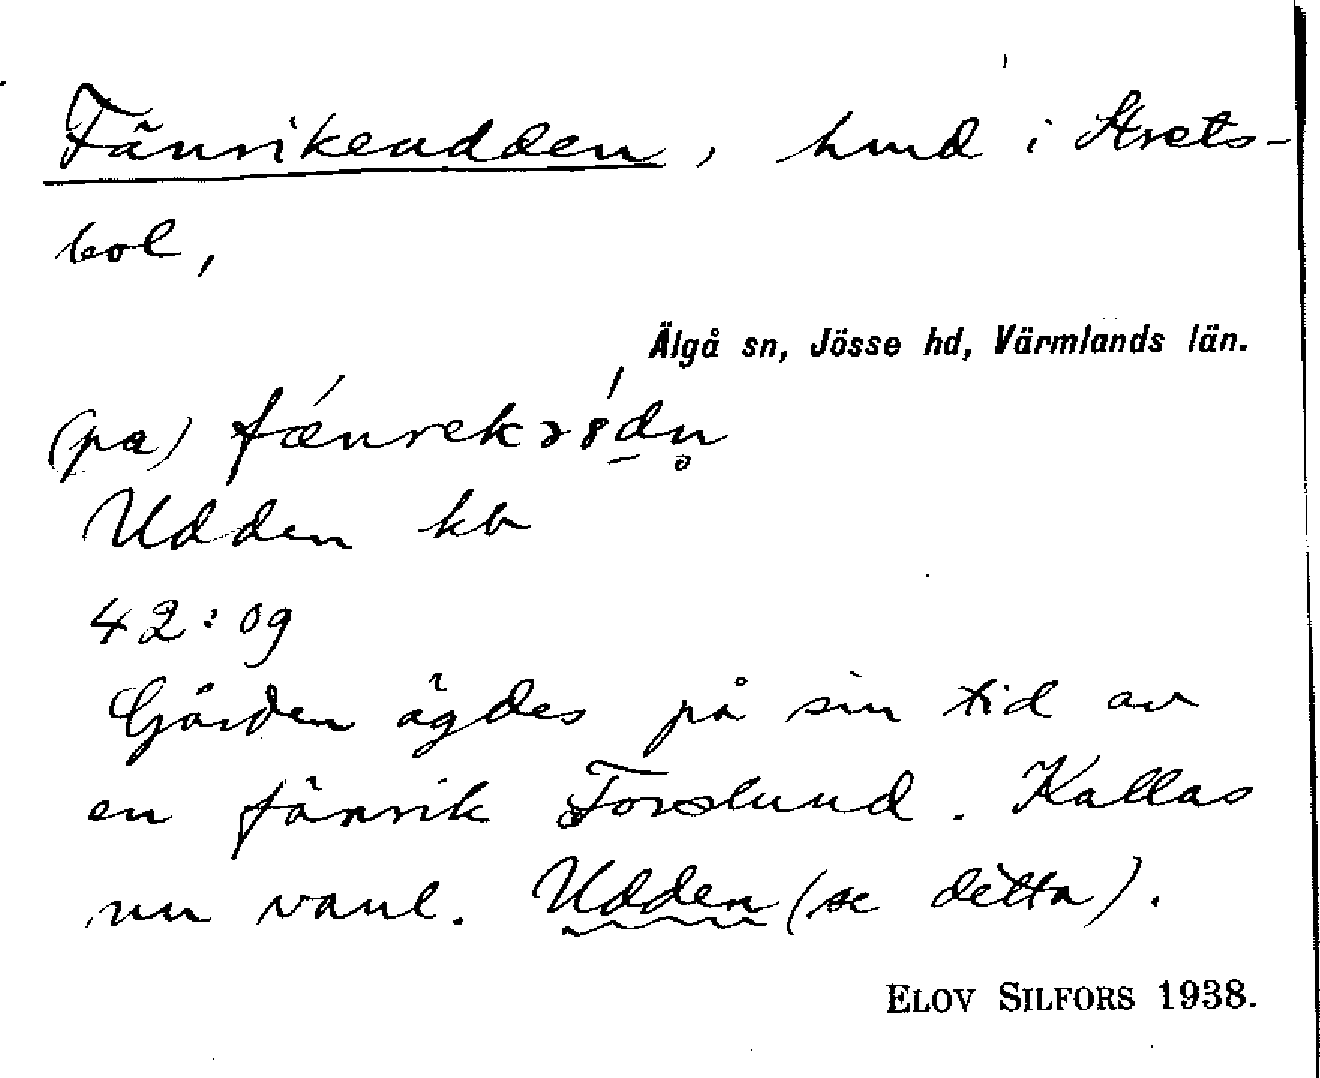 Fänrikeudden, hmd i Strets-
bol,
Älgå sn, Jösse hd, Värmlands län.
(pa)
Udden kb
42:09
Gården ägdes på sin tid av
en fänrik Forslund. Kallas
nu vanl. Udden (se detta).
ELOV SILFORS 1938.